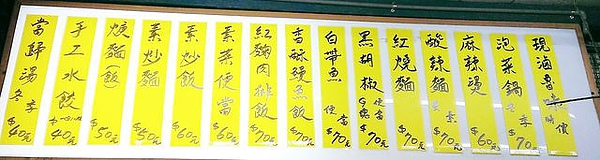 現滷魯味 時價
泡菜鍋 冬季 $70元
麻辣燙 $60元
酸辣麵 冬季 $70元
紅燒麵 $70元
黑胡椒 便當 $70元
白帶魚 便當 $70元
香酥鱈魚飯 $70元
紅麴肉排飯 $70元
素菜便當 $60元
素炒飯 $60元
素炒麵 $50元
焿麵飯 $50元
手工水餃 40元
當歸湯 冬季 $40元